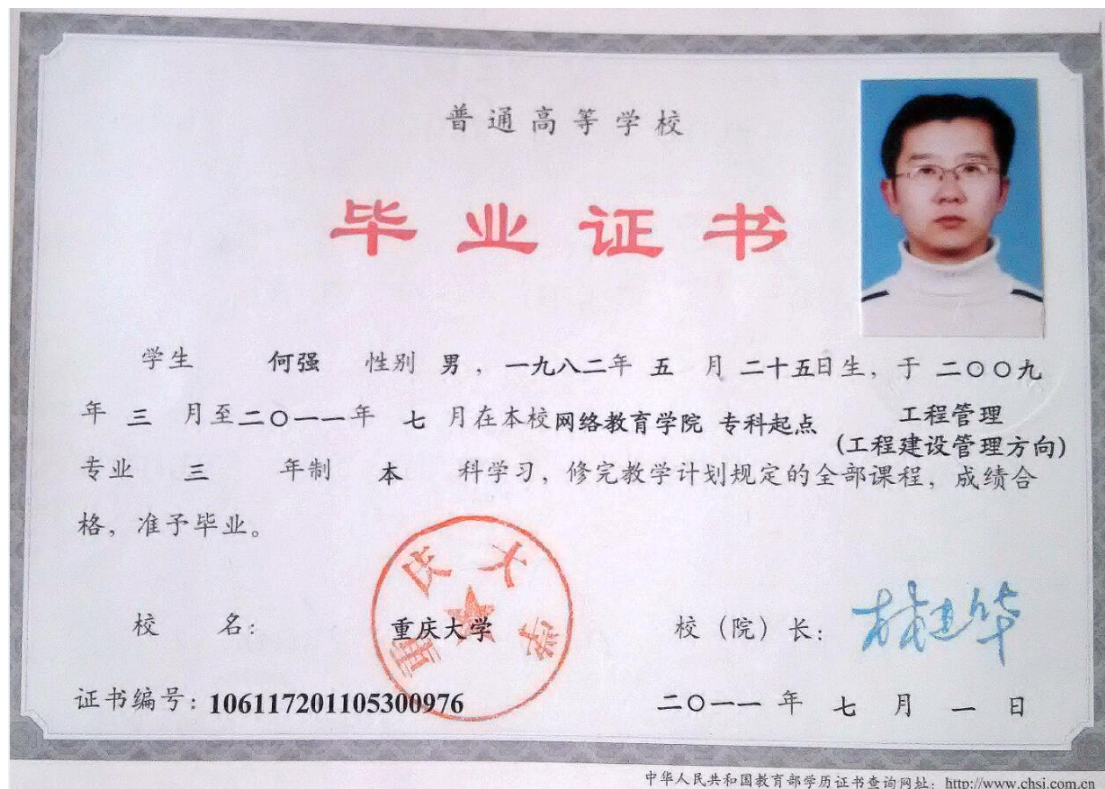 普通高等学校
毕业证书
学生 何强 性别 男，一九八二年 五 月 二十五日生，于 二〇〇九
年 三 月至二〇一一年 七 月在本校网络教育学院 专科起点 工程管理
(工程建设管理方向)
专业 三 年制 本 科学习，修完教学计划规定的全部课程，成绩合
格，准予毕业。
重庆大学
校 名： 重庆大学 校（院）长： 林建华
证书编号：106117201105300976 二〇一一 年 七 月 一 日
中华人民共和国教育部学历证书查询网址：http://www.chsi.com.cn